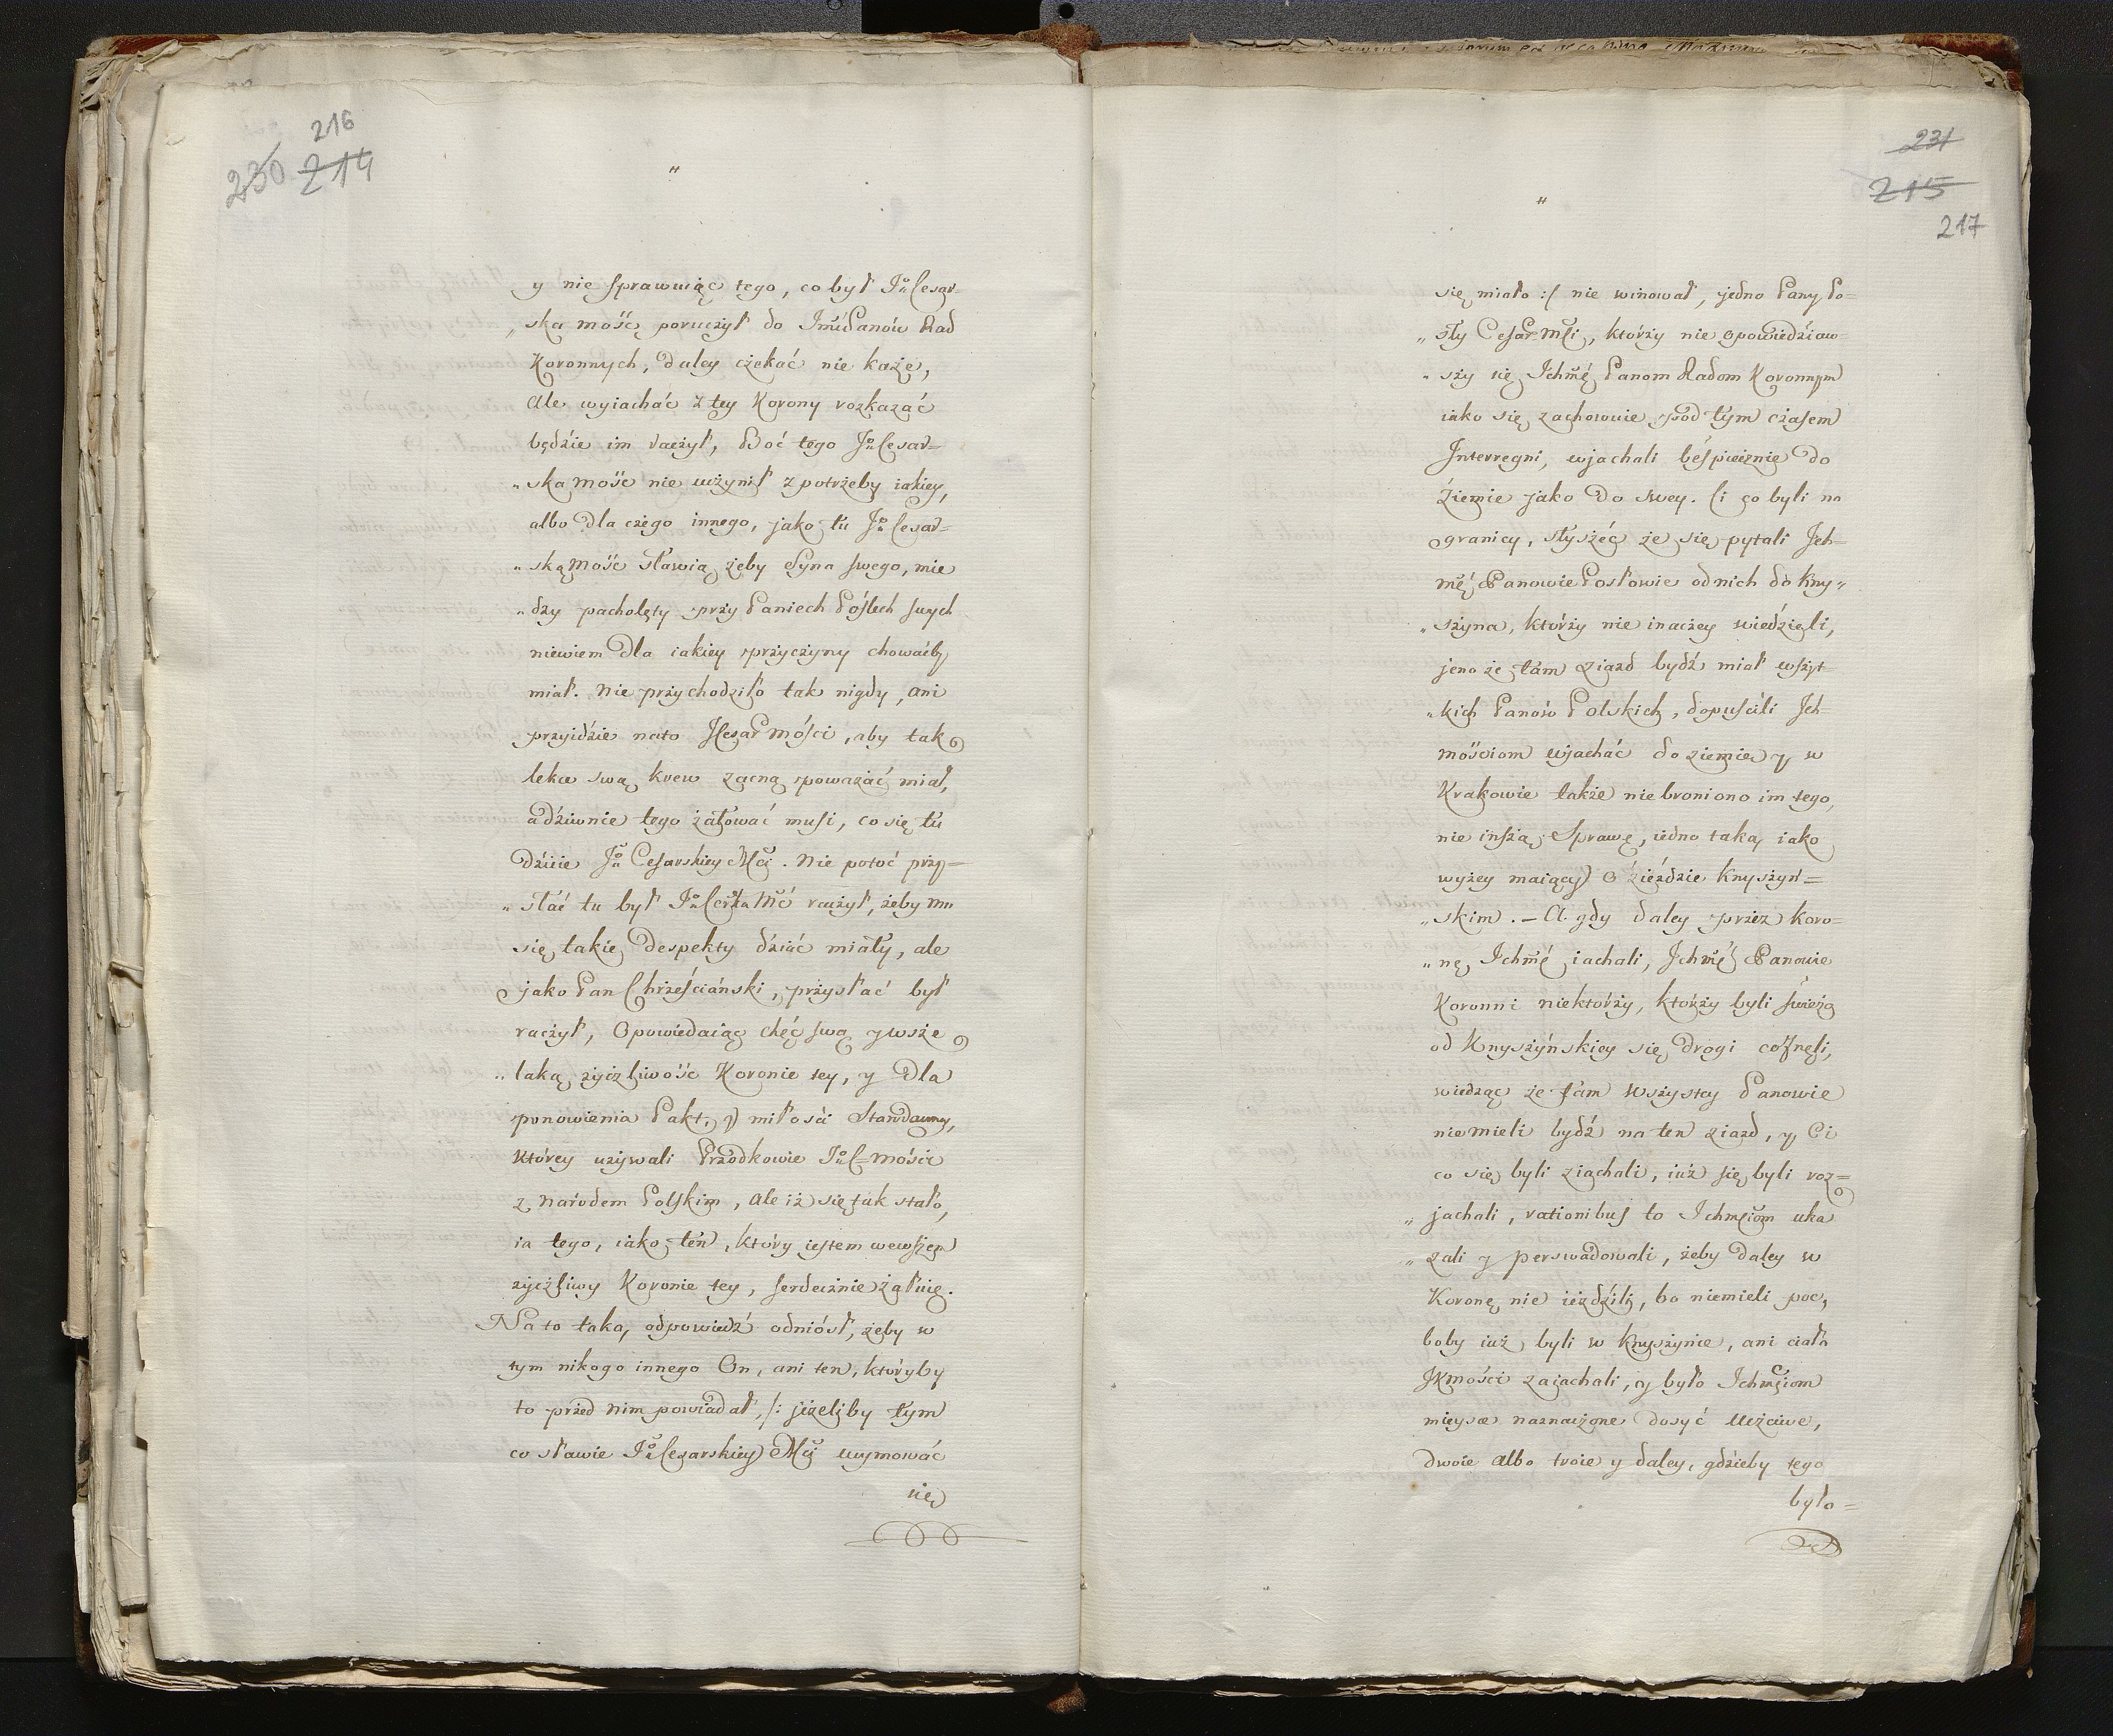 216
230 214
"
y nie sprawuiąc tego, co był Jo Cesar-
„ska mość poruczył do Ichm̃ Panów Rad
Koronnych, daley czekać nie każe,
Ale wyiachać z tey Korony rozkazać
będzie im raczył, Boć tego Jo Cesar-
„ska mość nie uczynił z potrzeby iakiey,
albo dla czego innego, jako tu Jo Cesar-
„ską mość sławią żeby Syna swego, mie
„dzy pacholęty przy Paniech Posłech swych
niewiem dla iakiey przyczyny chowaćby
miał. Nie przychodziło tak nigdy, ani
przyidzie nato JCesar Mości, aby tak
lekce swą krew zacną poważać miał,
a dziwnie tego żałować musi, co się tu
dzieie Jo Cesarskiey Mći. Nie potoć przy-
„słać tu był Jo Cerska Mć raczył, żeby mu
się takie despekty dziać miały, ale
jako Pan Chrześciański, przysłać był
raczył, Opowiedaiąc chęć swą y wsze
„laką życzliwość Koronie tey, y dla
ponowienia Pakt, y miłości Starodawny,
którey używali Przodkowie Jo C-mości
z Narodem Polskim, ale iż się tak stało,
ia tego, iako ten, który iestem wewszem
życzliwy Koronie tey, serdecznie żałuię.
Na to taką odpowiedź odniósł, żeby w
tym nikogo innego On, ani ten, któryby
to przed nim powiadał, /: jeżeliby tym
co sławie Jo Cesarskiey Mći uymować
się
231
215
217
"
się miało :/ nie winował, jedno Pany Po-
„sły Cesar Mći, którzy nie opowiedziaw-
„szy się Ichmć Panom Radom Koronnym
iako się zachowuie pod tym czasem
Interregni, wjachali bespiecznie do
Ziemie jako do swey. Ci co byli na
granicy, słyszéć że się pytali Ich-
mć Panowie Posłowie od nich do Kny„
„szyna, którzy nie inaczey wiedzieli,
jeno że tam ziazd bydź miał wszyt-
„kich Panów Polskich, dopuścili Ich-
mościom wjachać do ziemie, y w
Krakowie także nie broniono im tego,
nie inszą Sprawę, iedno taką iako
wyżey maiący o zieździe Knyszyń-
„skim. – A gdy daley przez Koro-
„nę Ichmć iachali, Ichmć Panowie
Koronni niektórzy, którzy byli świeżo
od Knyszyńskiey się drogi cofnęli,
wiedząc że tam wszyscy Panowie
niemieli bydź na ten ziazd, y Ci
co się byli ziachali, iuż się byli roz-
„jachali, rationibus to Ichmciom uka
„zali y perswadowali, żeby daley w
Koronę nie ieździli, bo niemieli poc,
boby iuż byli w Knyszynie, ani ciała
JKmości zajachali, y było Ichmciom
mieysce naznaczone dosyć Uczciwe,
dwoie albo troie y daley, gdzieby tego
było-